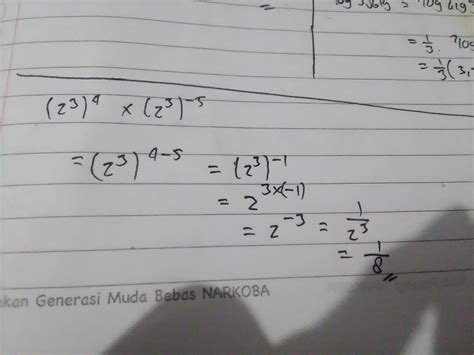 =
= 1/3 .
= 1/3 (3,
(2³)⁴ × (2³)⁻⁵
= (2³)⁴⁻⁵ = (2³)⁻¹
= 2³ˣ⁽⁻¹⁾
= 2⁻³ = 1/2³
= 1/8
kan Generasi Muda Bebas NARKOBA